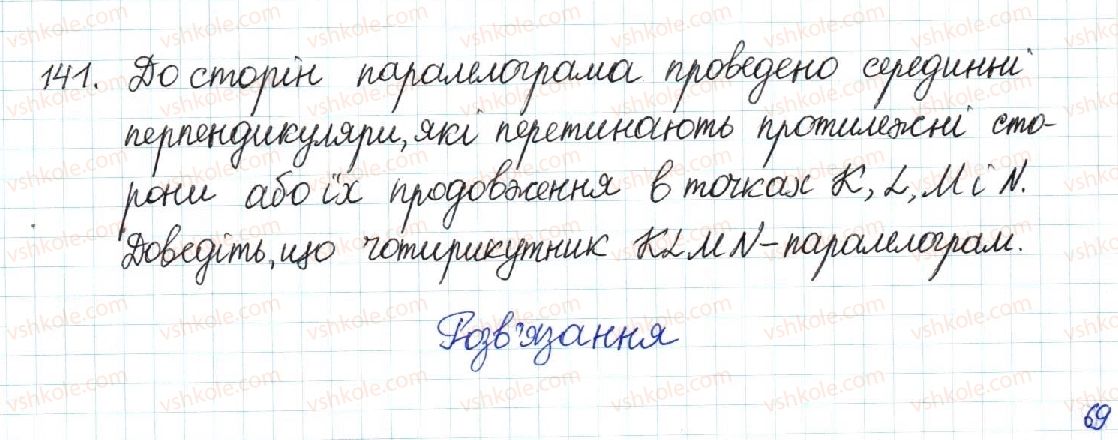 141. До сторін паралелограма проведено серединні
перпендикуляри, які перетинають протилежні сто-
рони або їх продовження в точках K, L, M і N.
Доведіть, що чотирикутник KLMN - паралелограм.
Розв'язання
69
vshkole.com